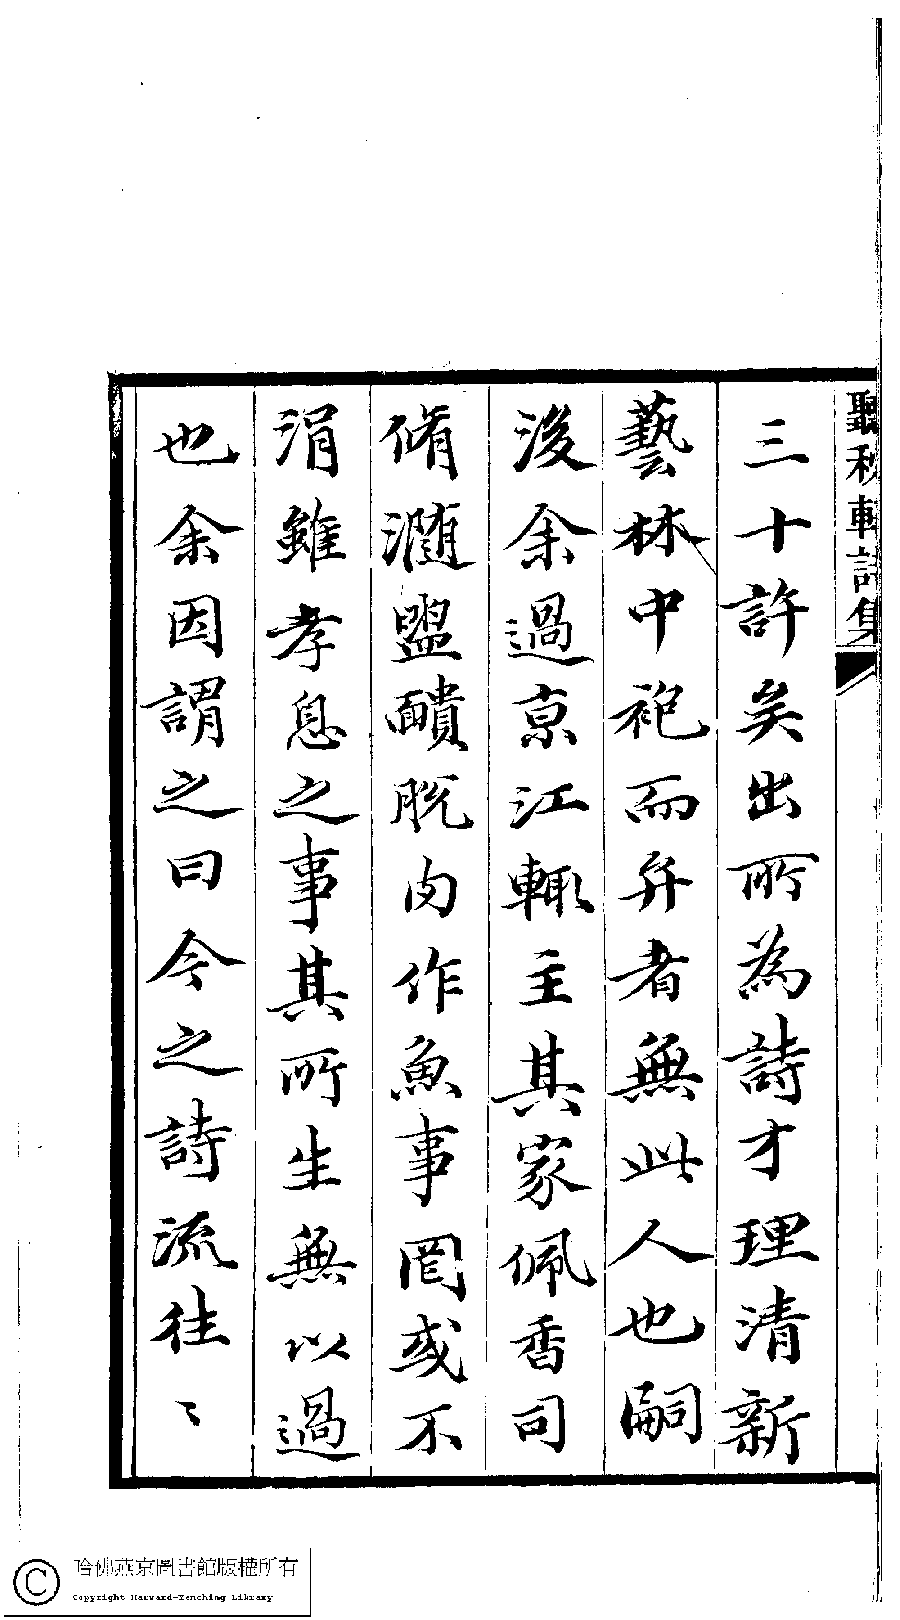 聽秋軒詩集
三十許矣出所為詩才理清新
藝林中袍而弁者無此人也嗣
後余過京江輙主其家佩香司
脩瀡盥靧脫肉作魚事罔或不
涓雖孝息之事其所生無以過
也余因謂之曰今之詩流往〻
哈佛燕京圖書館版權所有
Copyright Harvard-Yenching Library